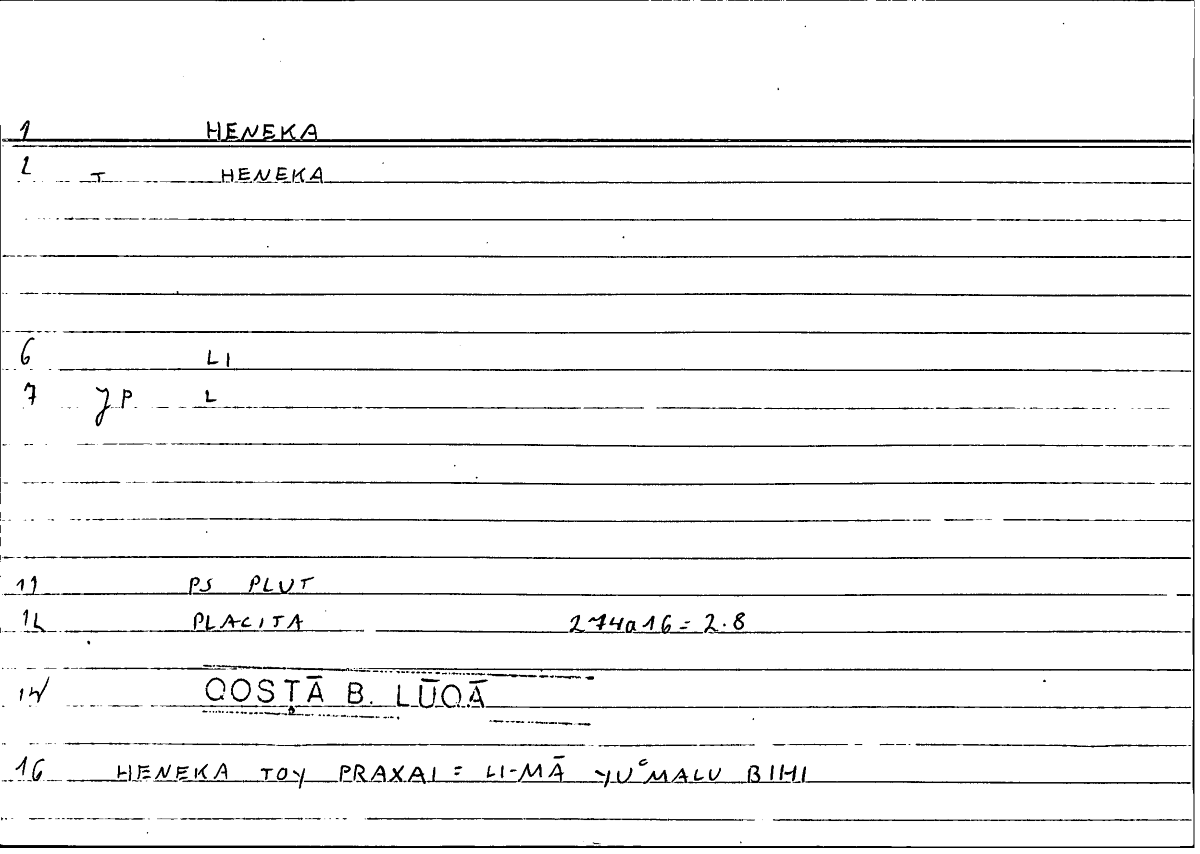 1 HENEKA
2 T HENEKA
6 LI
7 P L
11 PS PLUT
12 PLACITA 274a16 = 2.8
14 QOSṬĀ B. LŪQĀ
16 HENEKA TOY PRAXAI = LI-MĀ YUʿMALU BIHI